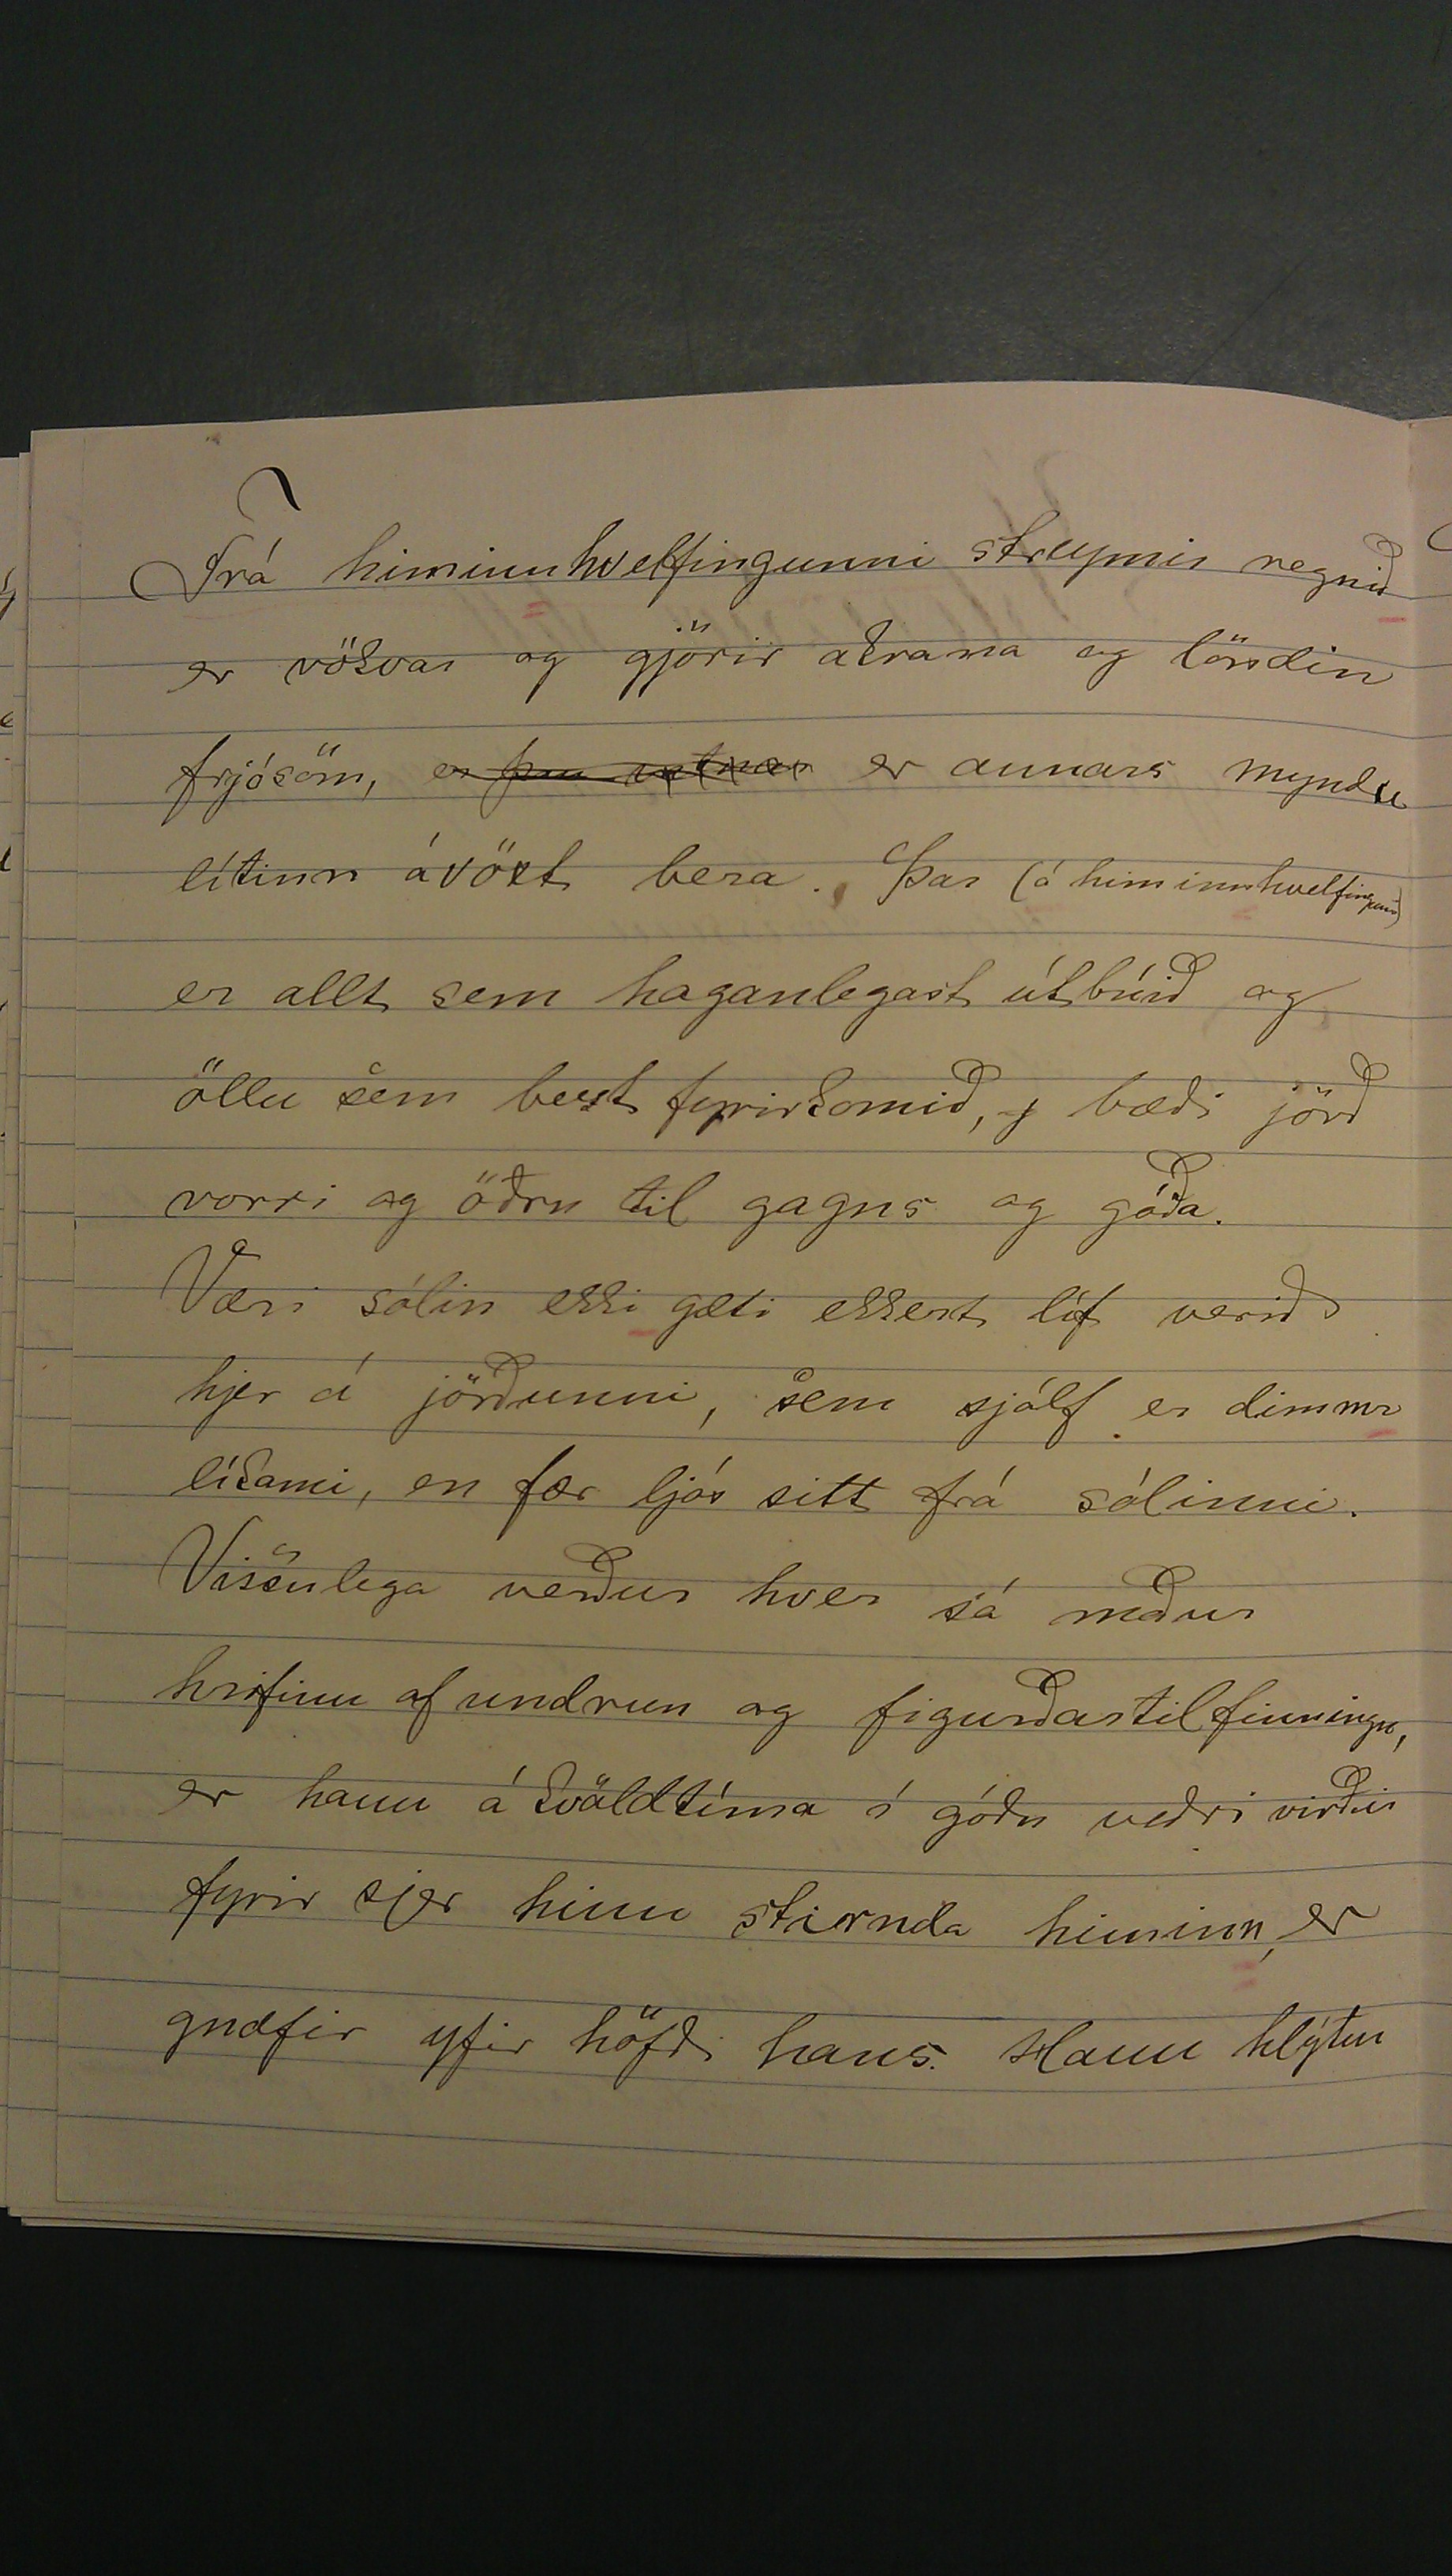 Frá himinnhvelfingunni streymir regnið
er vökvar og gjörir akrana og löndin
frjósöm, er annars myndu
lítinn ávöxt bera. Þar (á himinnhvelfingunni)
er allt sem haganlegast útbúið og
öllu sem best fyrirkomið, bæði jörð
vorri og öðru til gagns og góða.
Væri sólin ekki gæti ekkert líf verið
hjer á jörðunni, sem sjálf er dimmr
líkami, en fær ljós sitt frá sólinni.
Vissulega verður hver sá maður
hrifinn af undrun og fegurðartilfinningu,
er hann á kvöldtíma í góðu veðri virðir
fyrir sjer hinn stirnda himinn, er
gnæfir yfir höfði hans. Hann hlýtur